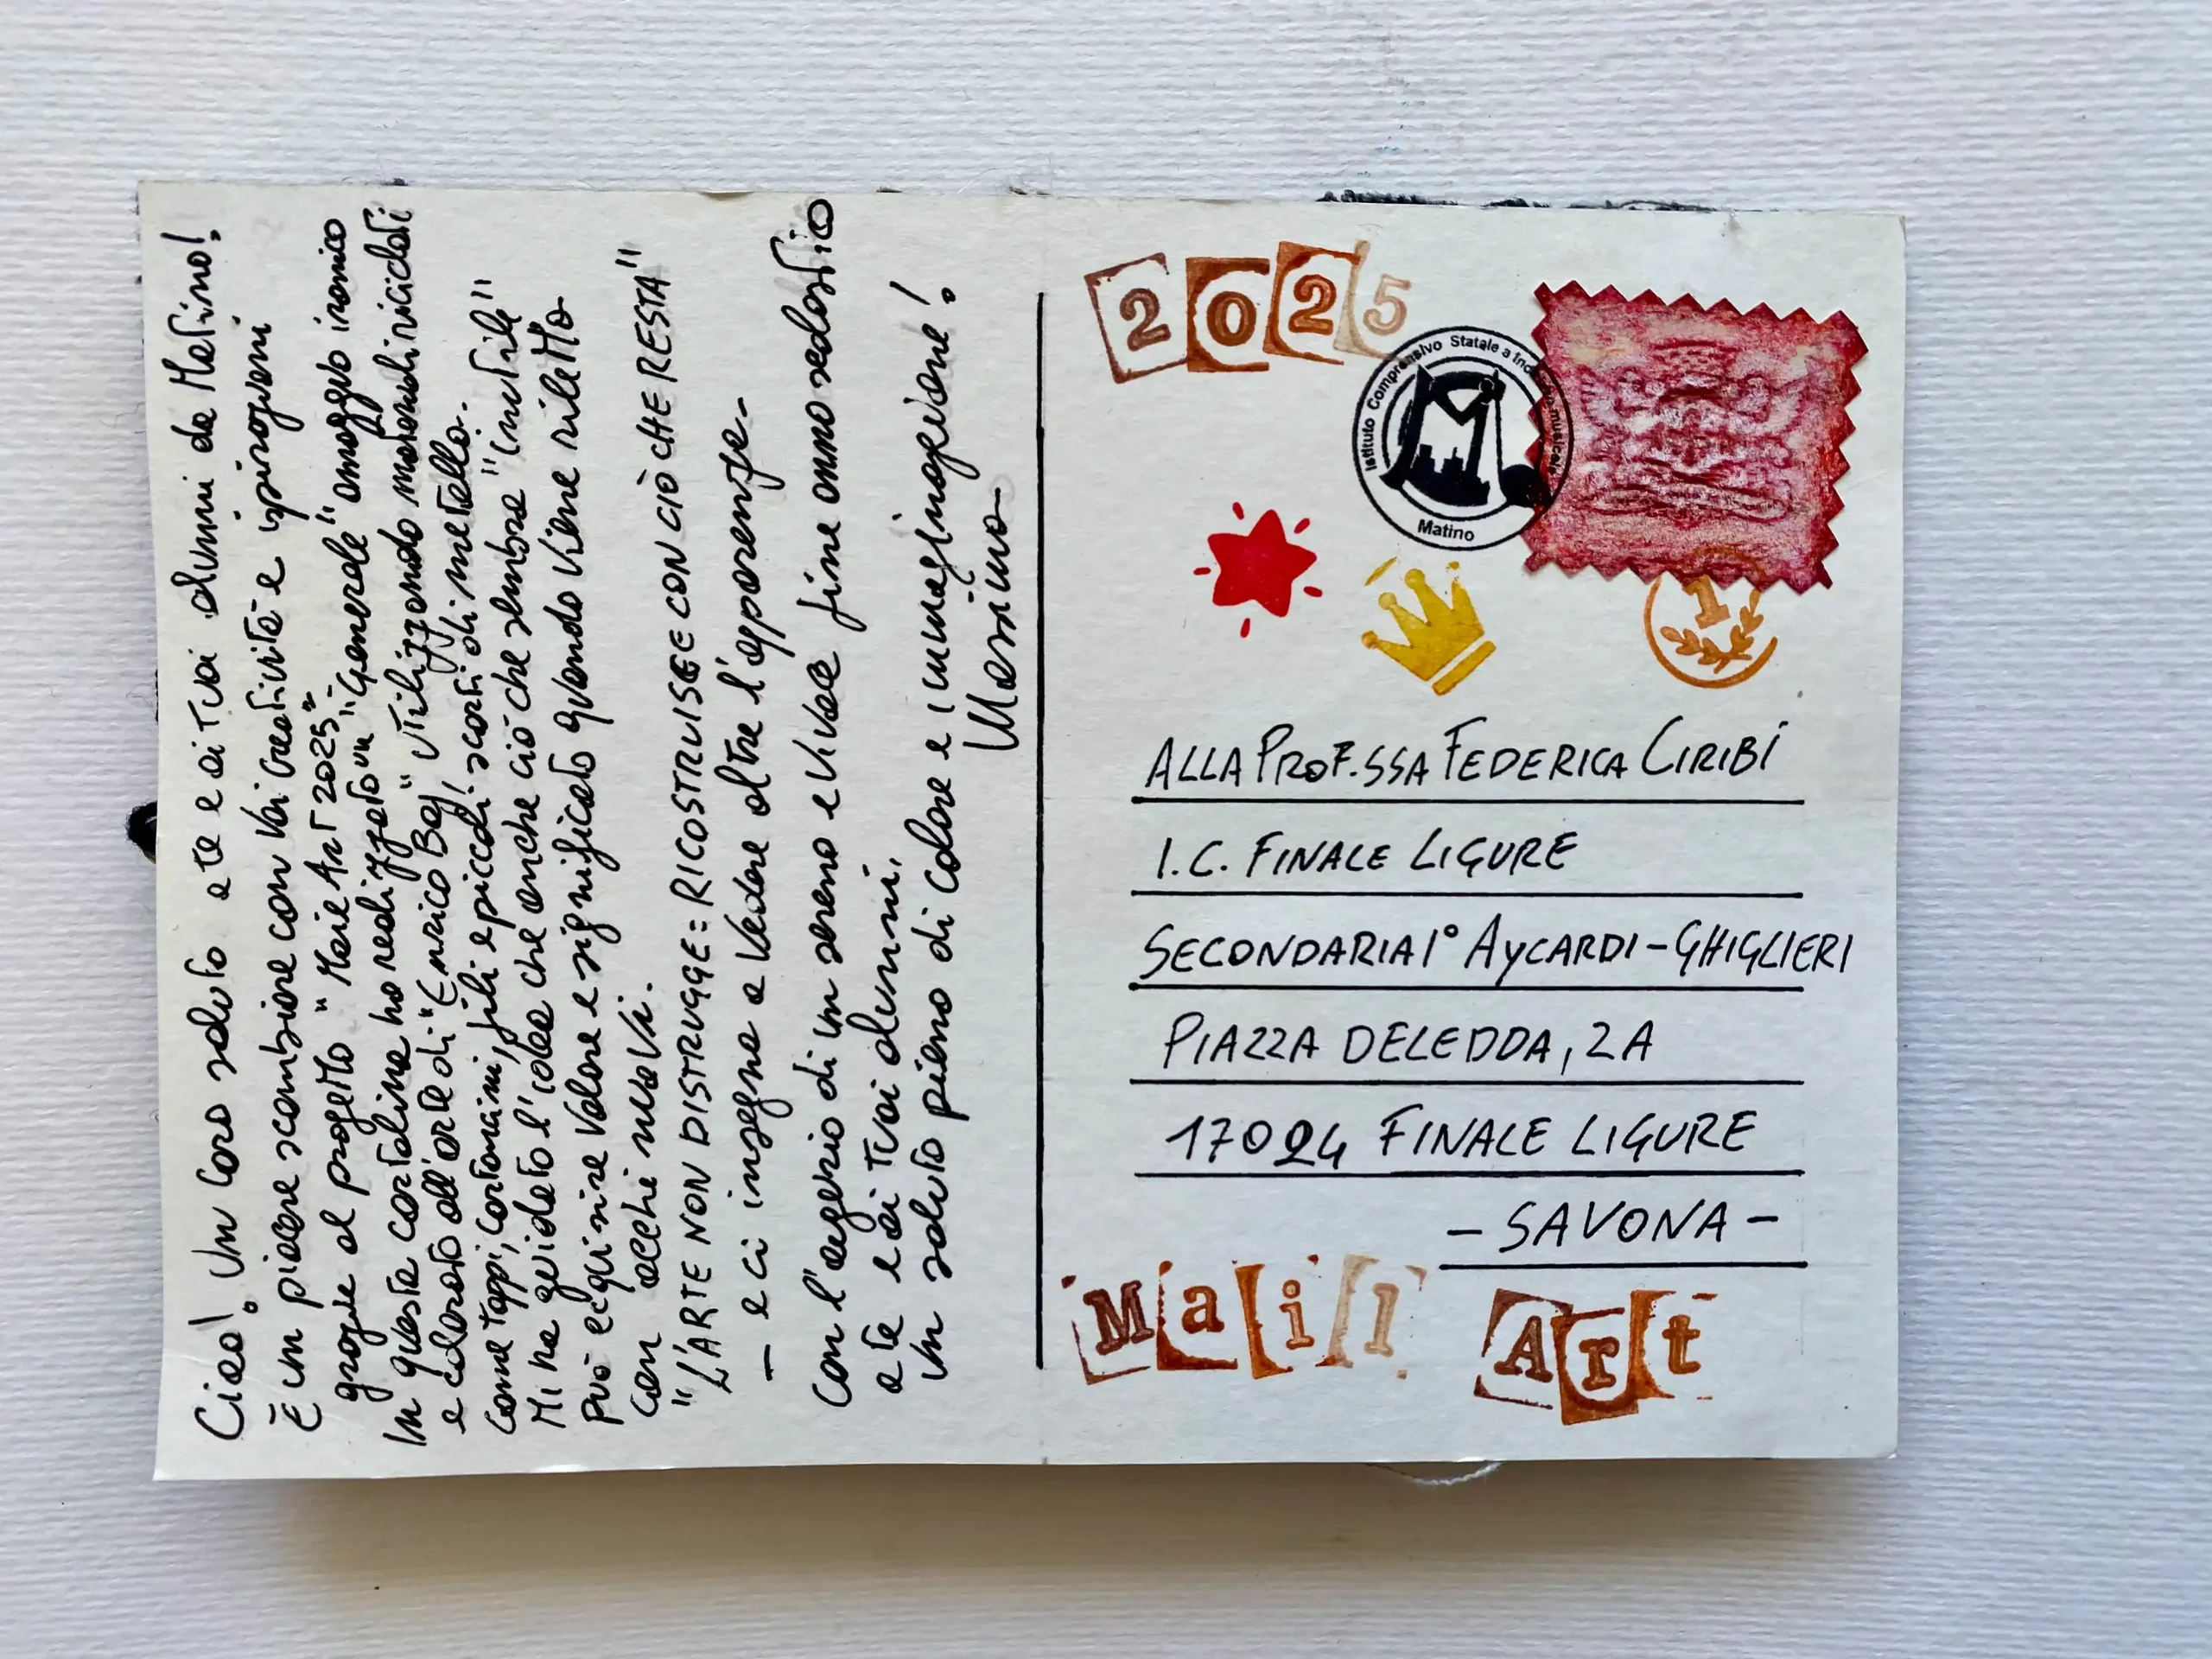 Ciao! Un caro saluto a te e ai tuoi alunni da Matino!
È un piacere scambiare con voi creatività e ispirazioni
grazie al progetto "Mail Art 2025"
In questa cartolina ho realizzato un "Generale" omaggio ironico
e colorato all'arte di "Enrico Baj" utilizzando materiali riciclati
come tappi, cartoncini, fili e piccoli scarti di metallo.
Mi ha guidato l'idea che anche ciò che sembra "inutile"
può acquisire valore e significato quando viene riletto
con occhi nuovi.
"L'ARTE NON DISTRUGGE: RICOSTRUISCE CON CIÒ CHE RESTA"
— e ci insegna a vedere oltre l'apparenza-
Con l'augurio di un sereno e vivace fine anno scolastico
a te e ai tuoi alunni,
un saluto pieno di colore e immaginazione!
Massimo
2025
Istituto Comprensivo Statale a musicale
Matino
1
ALLA PROF.SSA FEDERICA CIRIBÌ
I.C. FINALE LIGURE
SECONDARIA I° AYCARDI-GHIGLIERI
PIAZZA DELEDDA, 2A
17024 FINALE LIGURE
- SAVONA -
Mail Art